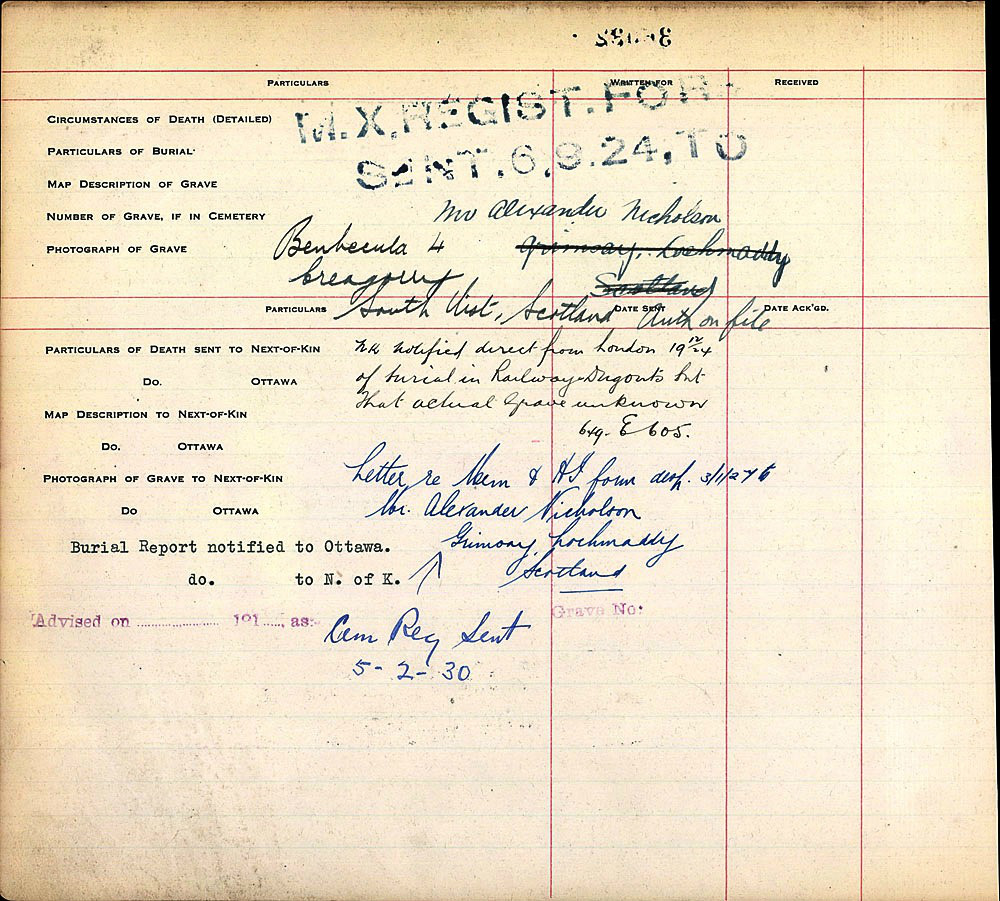 PARTICULARS WRITTEN FOR RECEIVED
M.X.REGIST.FOR
CIRCUMSTANCES OF DEATH (DETAILED)
PARTICULARS OF BURIAL
SENT.6.8.24.TO
MAP DESCRIPTION OF GRAVE
NUMBER OF GRAVE, IF IN CEMETERY Mr Alexander Nicholson
PHOTOGRAPH OF GRAVE Benbecula 4 Grimsay, Lochmaddy
Creagorry Scotland
PARTICULARS South Uist, Scotland DATE SENT Auth on file DATE ACK'GD.
PARTICULARS OF DEATH SENT TO NEXT-OF-KIN NK notified direct from London 19 12/24
DO. OTTAWA of burial in Railway Dugouts but
MAP DESCRIPTION TO NEXT-OF-KIN that actual Grave unknown
DO. OTTAWA 649-E605.
PHOTOGRAPH OF GRAVE TO NEXT-OF-KIN Letter re Mem & HI form desp. 3/1/27 to
DO OTTAWA Mr. Alexander Nicholson
Burial Report notified to Ottawa. Grimsay, Lochmaddy
do. to N. of K. Scotland
Advised on 191 , as:- Grave No:
Cem Reg Sent
5-2-30